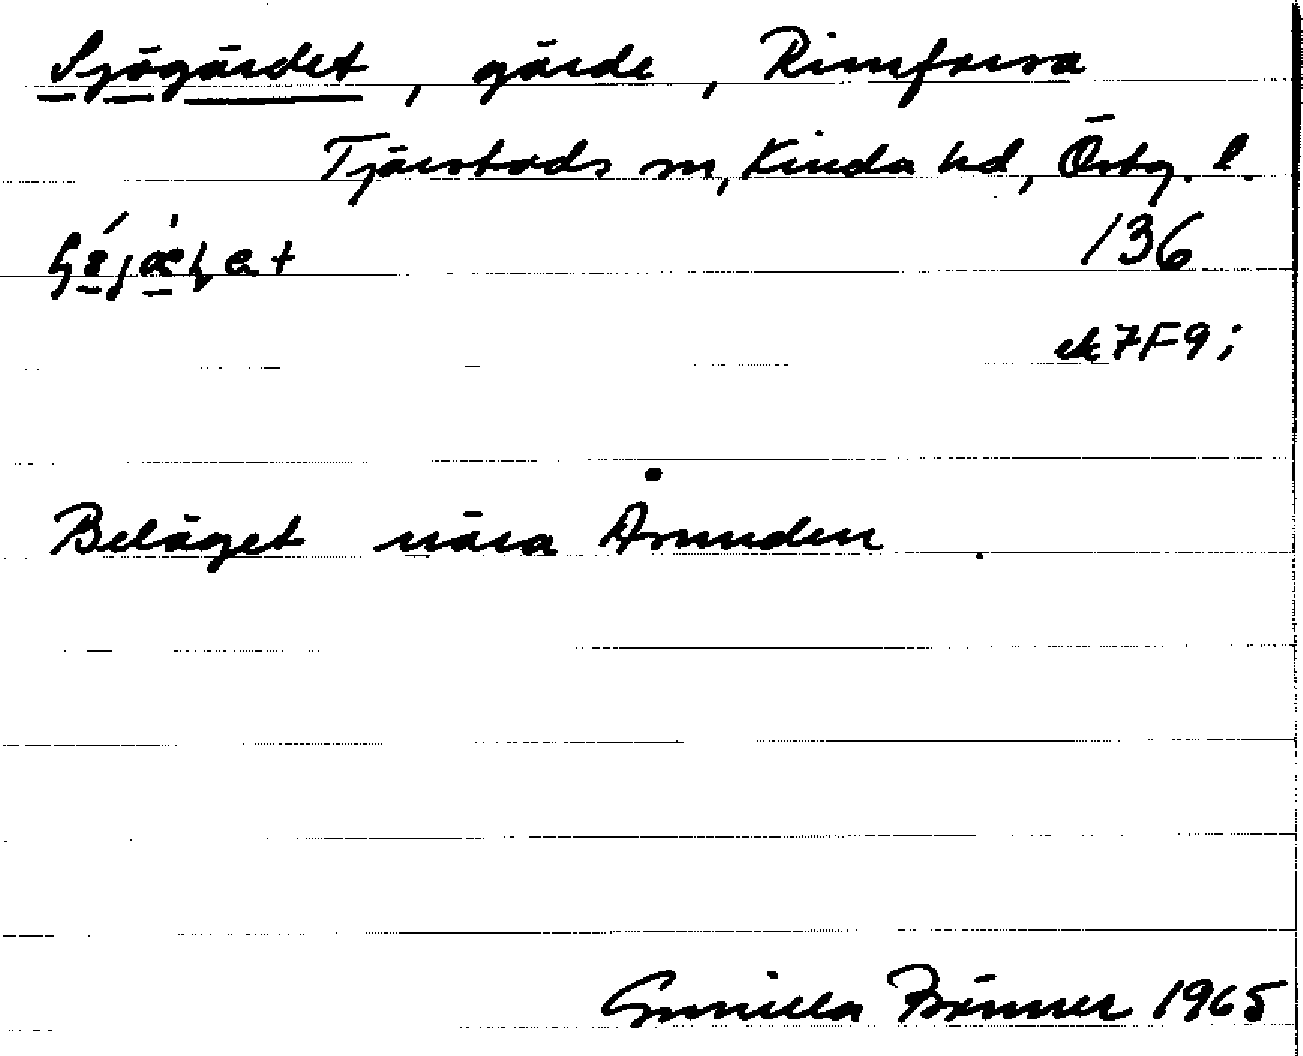 Sjögärdet, gärde, Rimforsa
Tjärstads sn, Kinda hd, Östg. l.
136
ek 7F9i
Beläget nära Åsunden.
Gunilla Fränner 1965